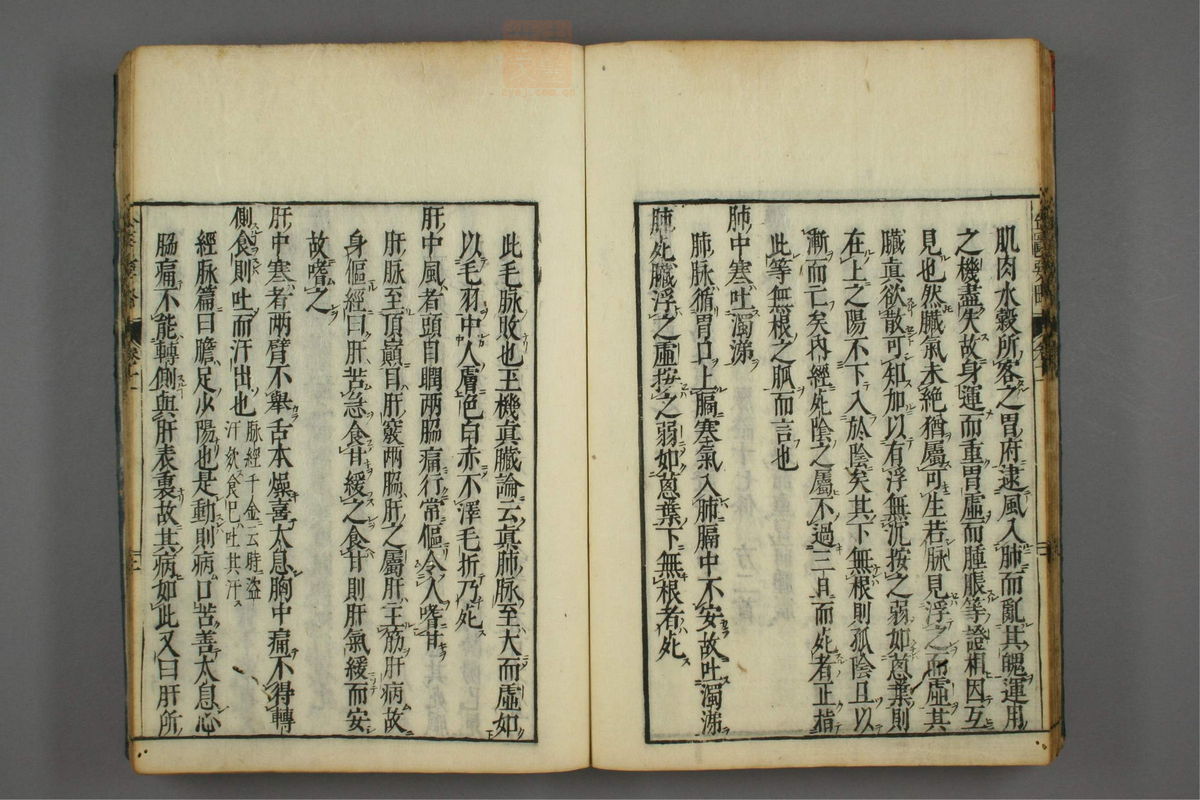 肌肉水穀所客之胃府逮風入肺而亂其魄運用
之機盡失故身運而重胃虛而腫脹等證相因互
見也然臟氣未絶猶屬可生若脉見浮之而虛其
臟真欲散可知加以有浮無沉按之弱如葱葉則
在上之陽不下入於陰矣其下無根則孤陰且以
漸而亡矣内經死陰之屬不過三日而死者正指
此等無根之脈而言也
肺中寒吐濁涕
肺脉循胃口上膈塞氣入肺膈中不安故吐濁涕
肺死臟浮之虛按之弱如葱葉下無根者死
此毛脉敗也玉機真臟論云真肺脉至大而虛如
以毛羽中人膚色白赤不澤毛折乃死
肝中風者頭目瞤兩脇痛行常傴令人嗜甘
肝脉至頂巔目肝竅兩脇肝之屬肝主筋肝病故
身傴經曰肝苦急食甘緩之食甘則肝氣緩而安
故嗜之
肝中寒者兩臂不舉舌本燥喜太息胸中痛不得轉
側食則吐而汗出也脉經千金云時盗汗欬食已吐其汁
經脉篇曰膽足少陽也是動則病口苦善太息心
脇痛不能轉側與肝表裏故其病如此又曰肝所